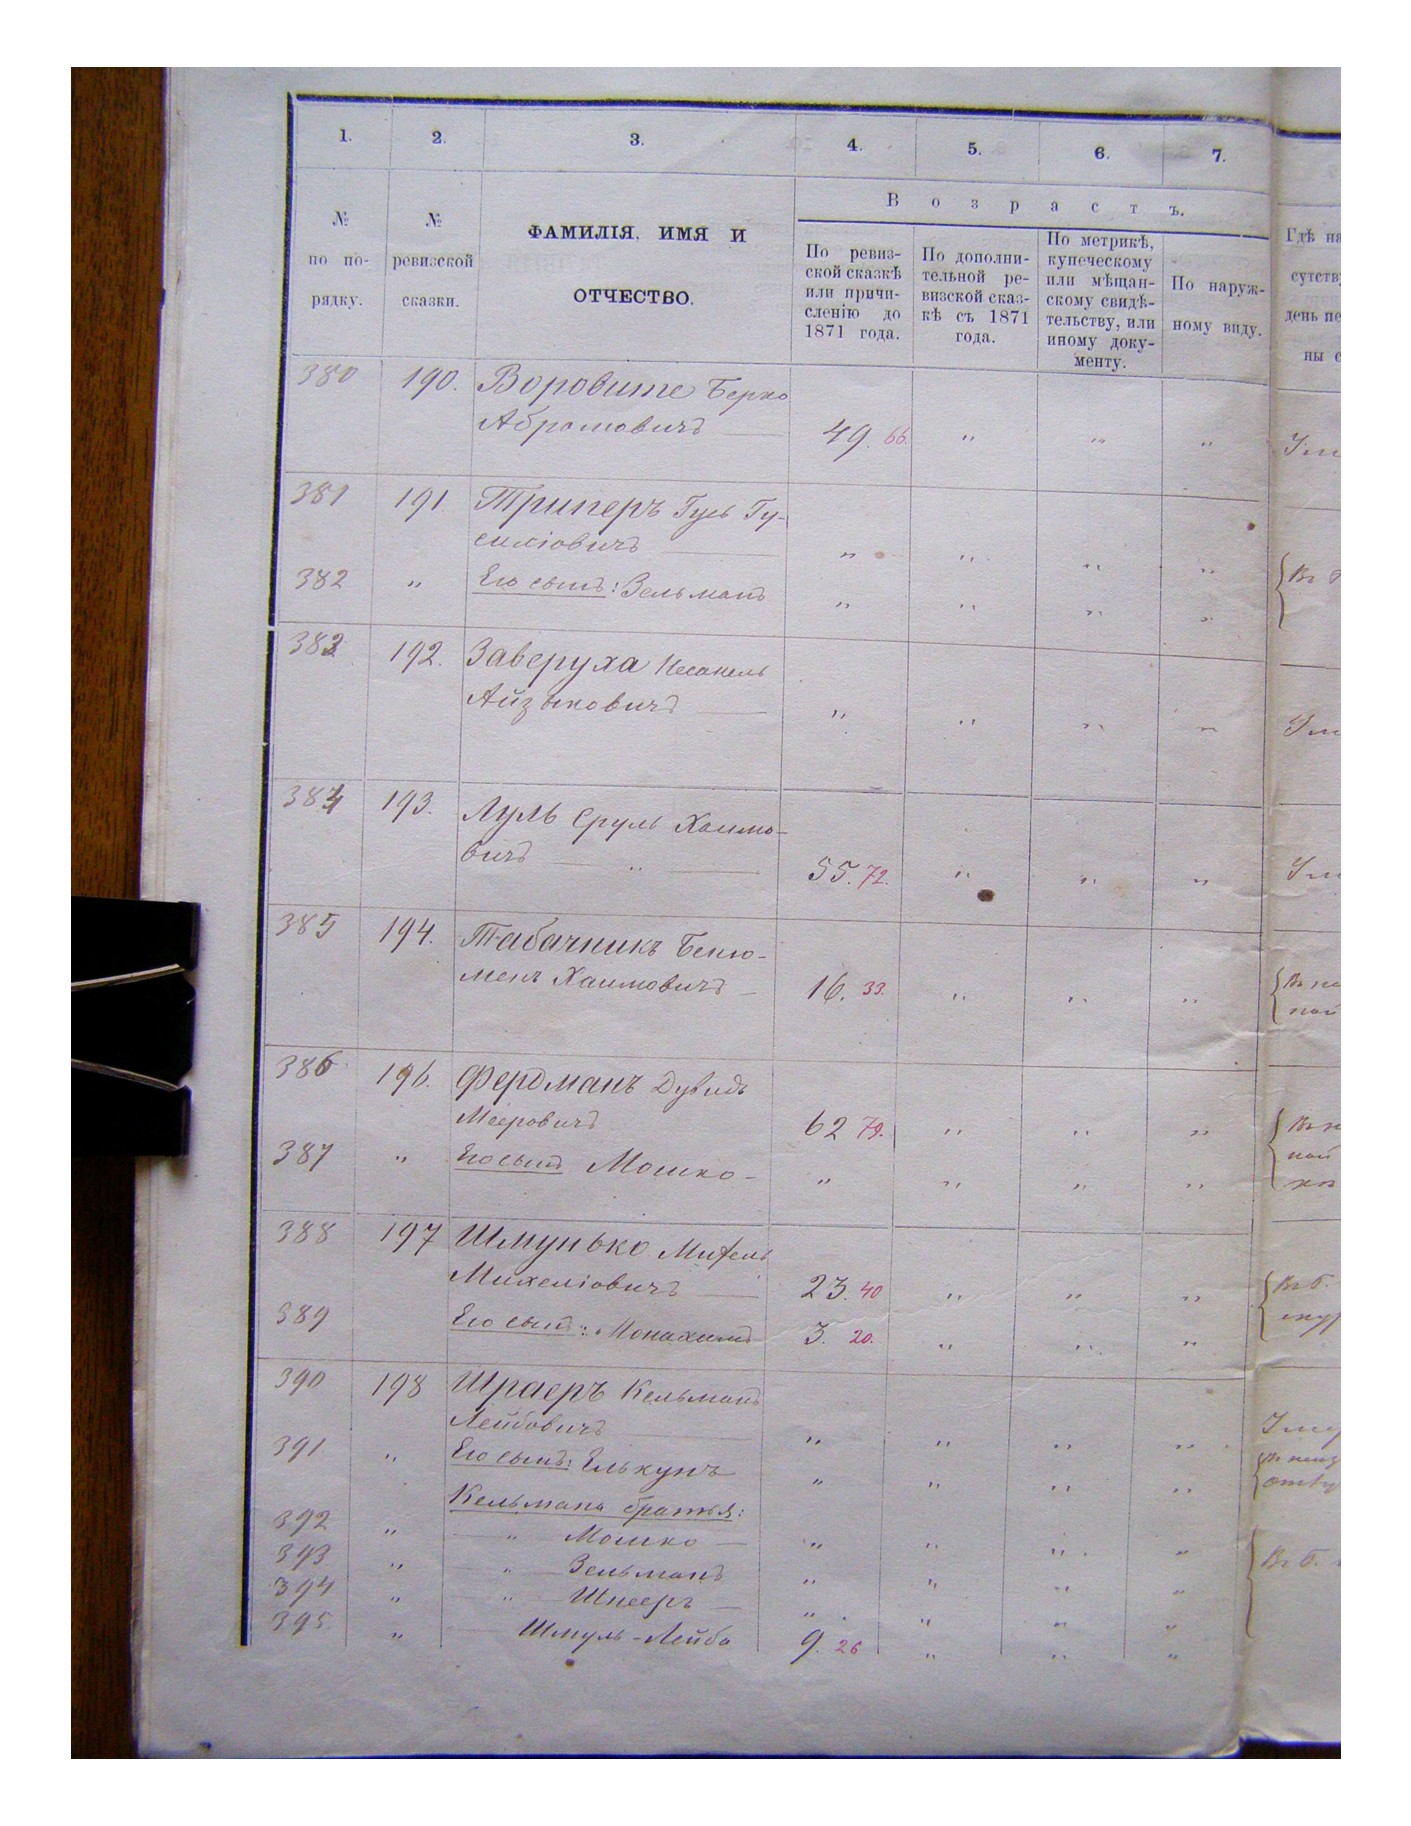 1. 2. 3. 4. 5. 6. 7.
№ по по-рядку.
№ ревизской сказки.
ФАМИЛІЯ, ИМЯ И
ОТЧЕСТВО.
Возрастъ.
По ревиз-
ской сказкѣ
или причи-
сленію до
1871 года.
По дополни-
тельной ре-
визской сказ-
кѣ съ 1871
года.
По метрикѣ,
купеческому
или мѣщан-
скому свидѣ-
тельству, или
иному доку-
менту.
По наруж-
ному виду.
Гдѣ на
сутству
день пе
ны с
380 190. Воровите Берко
Абрамовичъ — 49. 66. " " "
381 191 Триперъ Гусь Гу-
силіовичъ — " " " "
382 " Его сынъ: Зельманъ " " " "
383 192. Заверуха
Айзыковичъ — " " " "
384 193. Луль Сруль Хаимо-
вичъ — " — 55. 72. " " "
385 194. Табачникъ Беню-
менъ Хаимовичъ — 16. 33. " " "
386 196. Фердманъ Дувидъ
Мееровичъ 62 79. " " "
387 " Его сынъ Мошко - " " " "
388 197 Шмунько Михель
Михеліовичъ — 23. 40 " " "
389 Его сынъ: Монахимъ 3. 20. " " "
390 198 Шраеръ Кельманъ
Лейбовичъ — " " " "
391 " Его сынъ: Елькунъ " " " "
Кельмана братья:
392 " — " — Мошко — " " " "
393 " — " — Зельманъ " " " "
394 " " — Шнееръ — " " " "
395 " — Шмуль-Лейба 9. 26 " " "